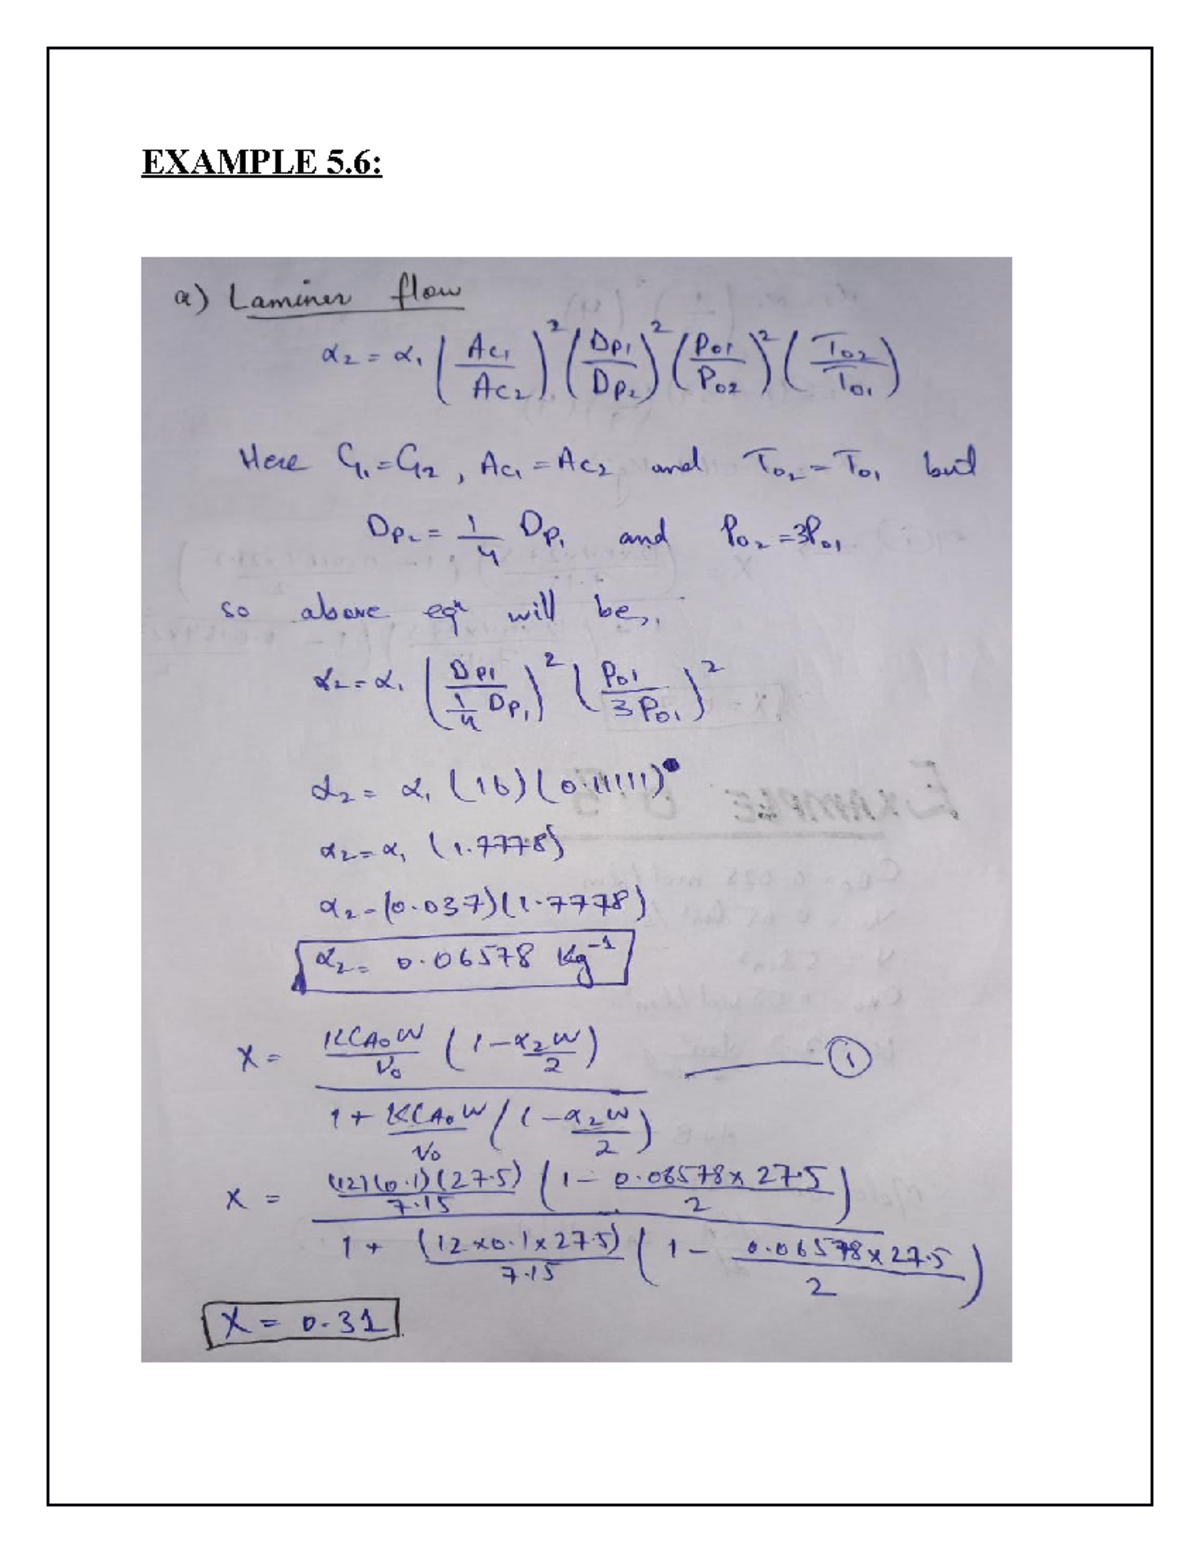 EXAMPLE 5.6:
a) Laminer flow
α₂ = α₁ (Ac₁/Ac₂)² (Dp₁/Dp₂)² (P₀₁/P₀₂)² (T₀₂/T₀₁)
Here G₁=G₂, Ac₁=Ac₂ and T₀₂=T₀₁ but
Dp₂ = 1/4 Dp₁ and P₀₂=3P₀₁
so above eqⁿ will be,
α₂=α₁ (Dp₁/(1/4 Dp₁))² (P₀₁/3P₀₁)²
α₂ = α₁ (16)(0.11111)
α₂=α₁ (1.7778)
α₂=(0.037)(1.7778)
α₂= 0.06578 Kg⁻¹
X = KCA₀W/V₀ (1-α₂W/2) / 1+KCA₀W/V₀ (1-α₂W/2) ——— ①
X = (12)(0.1)(27.5)/7.15 (1- 0.06578x27.5/2) / 1+ (12x0.1x27.5)/7.15 (1- 0.06578x27.5/2)
X = 0.31